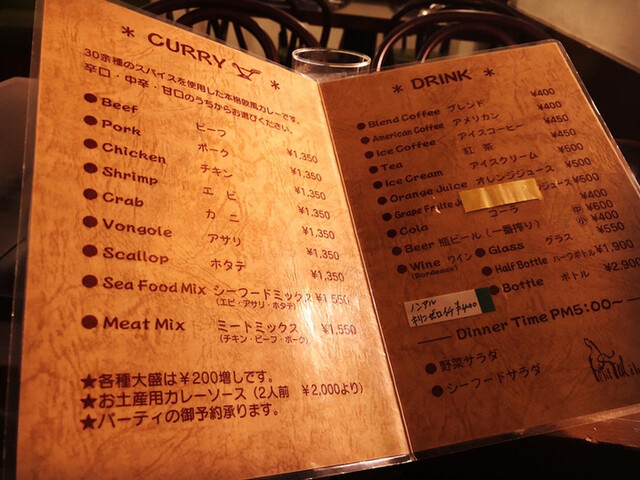 * CURRY *
30余種のスパイスを使用した本格欧風カレーです。
辛口・中辛・甘口のうちからお選びください。
●Beef ビーフ ¥1,350
●Pork ポーク ¥1,350
●Chicken チキン ¥1,350
●Shrimp エビ ¥1,350
●Crab カニ ¥1,350
●Vongole アサリ ¥1,350
●Scallop ホタテ ¥1,350
●Sea Food Mix シーフードミックス ¥1,550
(エビ・アサリ・ホタテ)
●Meat Mix ミートミックス ¥1,550
(チキン・ビーフ・ポーク)
★各種大盛は¥200増しです。
★お土産用カレーソース(2人前 ¥2,000より)
★パーティの御予約承ります。
* DRINK *
●Blend Coffee ブレンド ¥400
●American Coffee アメリカン ¥400
●Ice Coffee アイスコーヒー ¥450
●Tea 紅茶 ¥450
●Ice Cream アイスクリーム ¥500
●Orange Juice オレンジジュース ¥500
●Grape Fruite J ジュース ¥500
●Cola コーラ ¥400
●Beer 瓶ビール(一番搾り) 中 ¥600
小 ¥400
●Wine ワイン ●Glass グラス ¥550
(Bordeaux)
●Half Bottle ハーフボトル ¥1,900
●Bottle ボトル ¥2,900
ノンアル
キリンゼロイチ ¥400
Dinner Time PM5:00~
●野菜サラダ
●シーフードサラダ